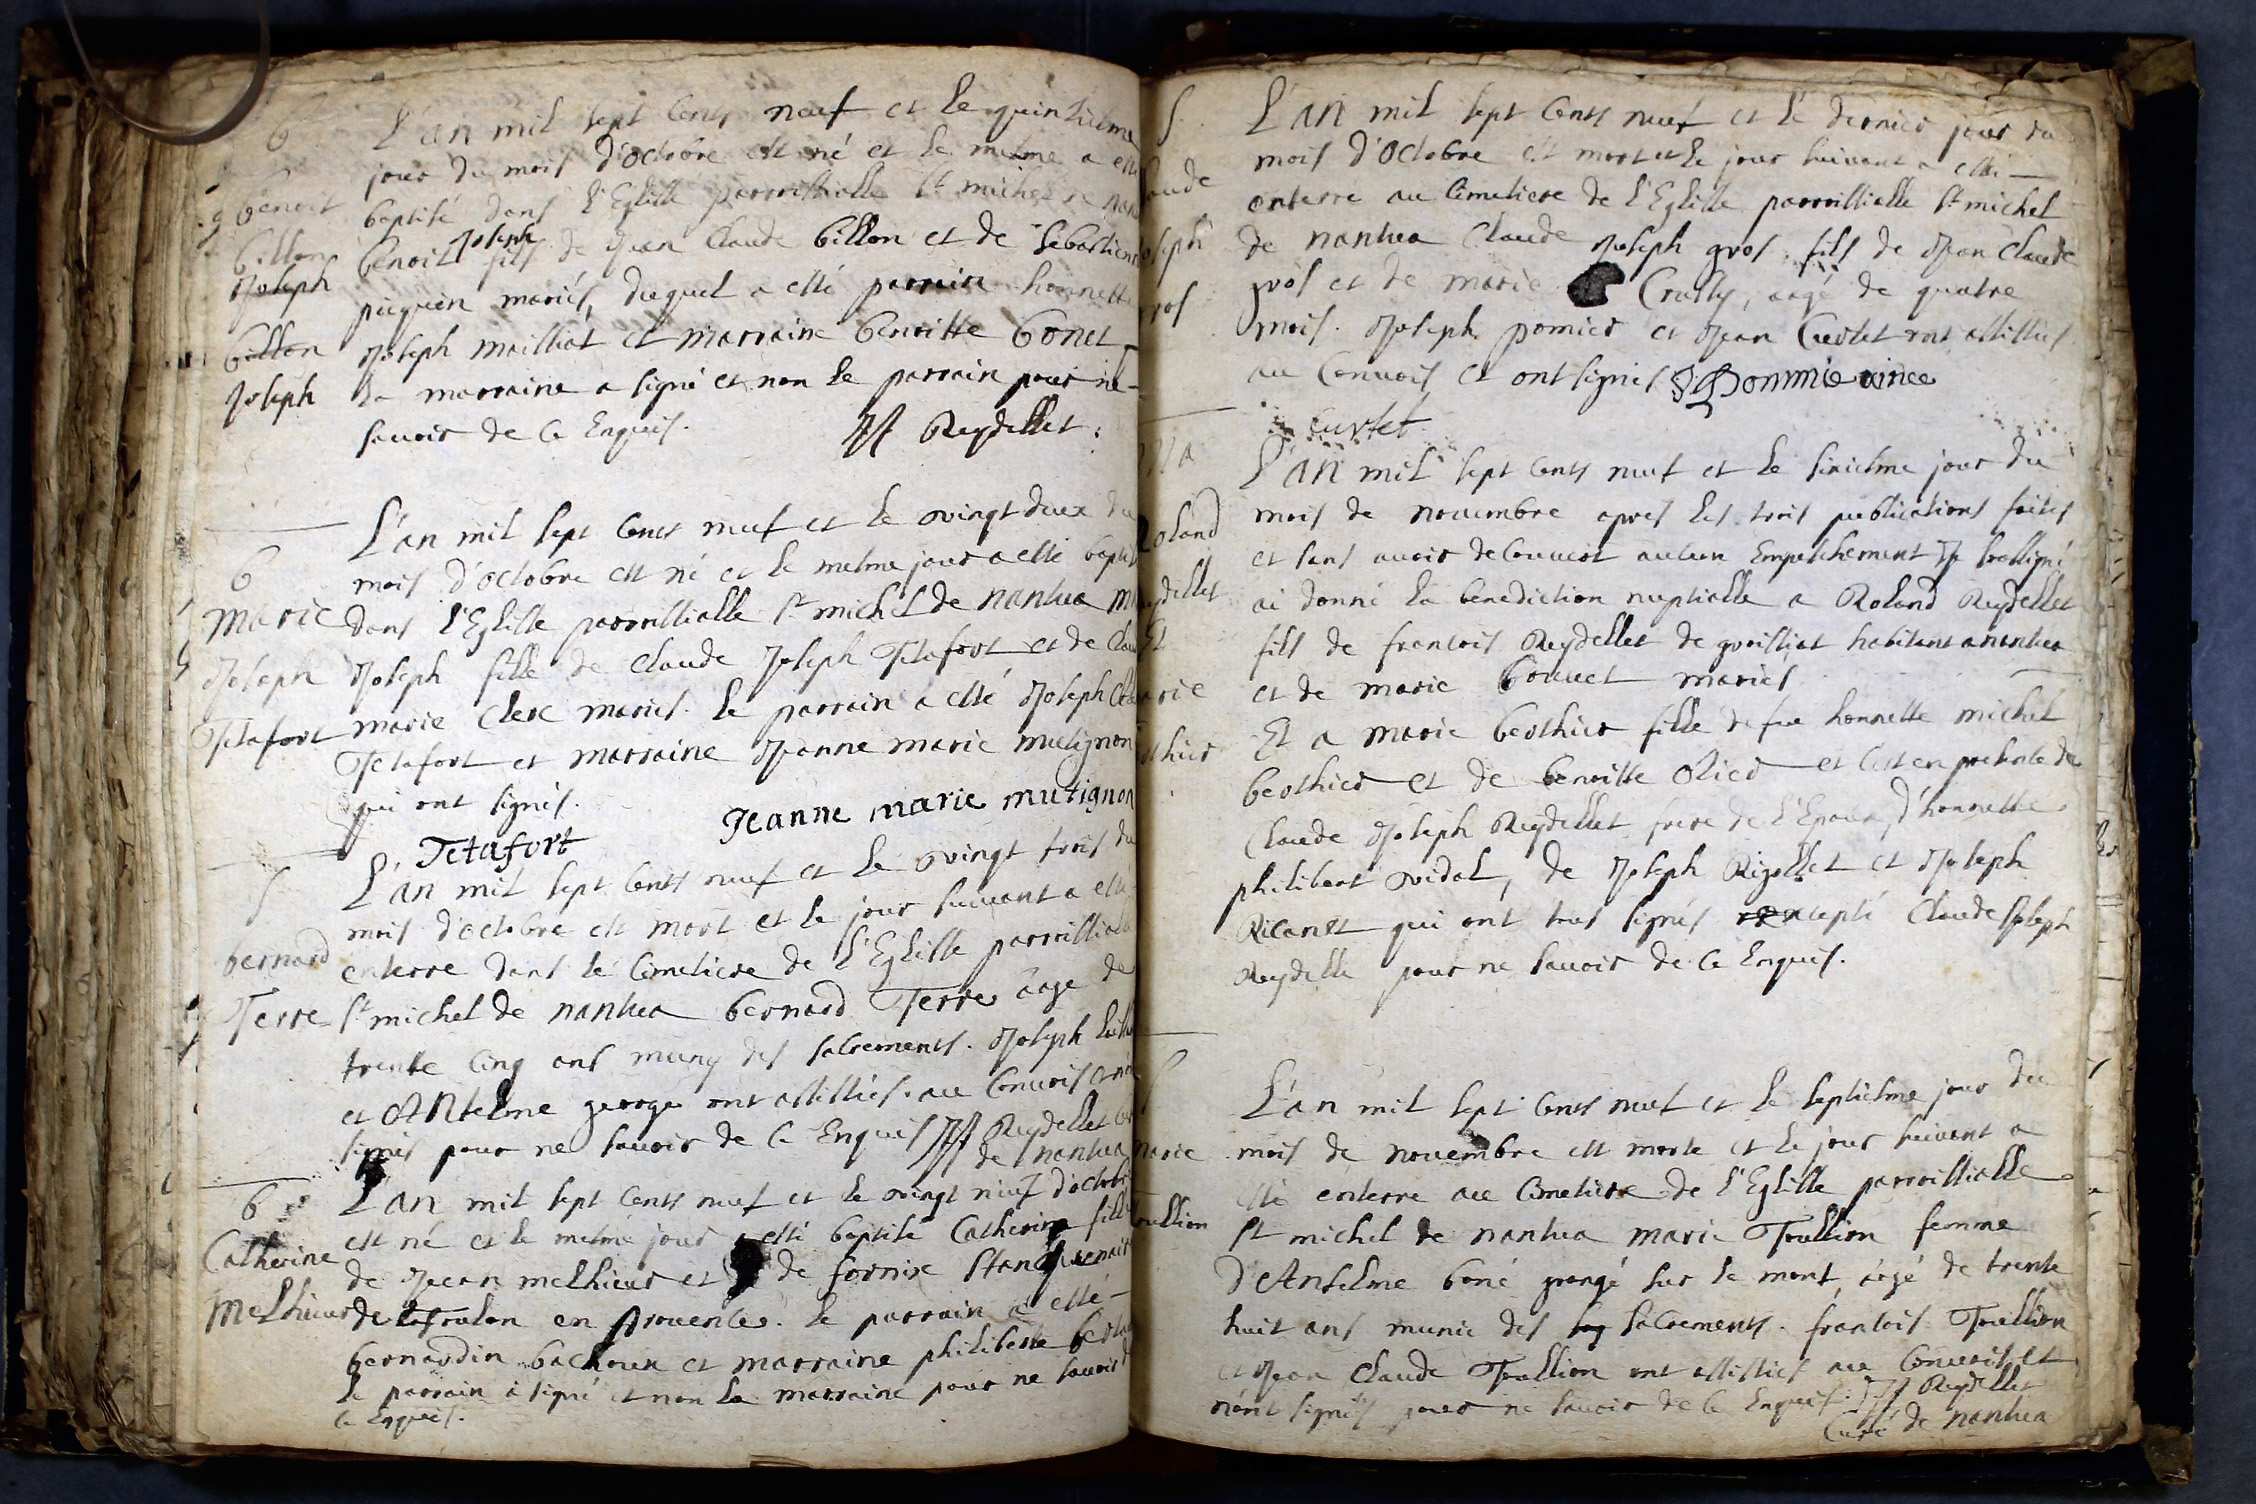 B
benoit
billon
Joseph
billon
Joseph
L'an mil sept cents neuf et le quinziesme
jour du mois d'octobre est né et le mesme a esté
baptisé dans l'Eglisse parroissialle St michel de nan
benoit Joseph fils de Jean Claude billon et de Sebastienne
piquein mariés, duquel a esté parrain honneste
Joseph mailliat et marraine benoitte bonet
la marraine a signé et non le parrain pour ne
scavoir de ce Enquis. JJ Reydellet
B
marie
Joseph
Tetafort
L'an mil sept cents neuf et le vingt deux du
mois d'octobre est né et le mesme jour a esté baptis
dans l'Eglisse parroissialle St michel de nantua ma
Joseph fille de Claude Joseph Tetafort et de Clau
marie Clerc mariés. Le parrain a esté Joseph
Tetafort et marraine Jeanne marie mutignon
qui ont signés.
Tetafort Jeanne marie mutignon
S
bernard
Terre
L'an mil sept cents neuf et le vingt trois du
mois d'octobre est mort et le jour suivant a esté
enterre dans le Cimetiere de l'Eglisse parroissialle
St michel de nantua bernard Terre aagé de
trente cinq ans muny des sacrements. Joseph
et ANtelme george ont assistés au Convois et n'on
signés pour ne scavoir de ce Enquis JJ Reydellet
de nantua
B
Catherine
Melhieur
L'an mil sept cents neuf et le vingt neuf d'octobre
est né et le mesme jour a esté baptisé Catherine fille
de Jean melhieur et de
de Toulon en provence. Le parrain a esté
bernardin bachoux et marraine philiberte
le parrain a signé et non la marraine pour ne scavoir d
ce Enquis.
S
aude
oseph
ros
L'an mil sept cents neuf et le dernier jour du
mois d'octobre est mort et le jour suivant a esté
enterre au Cimetiere de l'Eglisse parroissialle St michel
de nantua Claude Joseph gros fils de Jean Claude
gros et de marie Crully, aagé de quatre
mois. Joseph pomier et Jean Curtet ont assistés
au Convois et ont signés Pommie ainee
Curtet
Ma
Roland
ydellet
Et
arie
rthier
L'an mil sept cents neuf et le sixiesme jour du
mois de novembre apres les trois publications faites
et sans avoir decouvert aucun Empechement Je soussigné
ai donné la benediction nuptialle a Roland Reydellet
fils de francois Reydellet de groissiat habitant a nantua
et de marie bouvet mariés
Et a marie berthier fille de feu honneste michel
berthier et de benoitte Olier et c'est en presence de
Claude Joseph Reydellet frere de l'Epoux, d'honneste
philibert vidal, de Joseph Rigollet et Joseph
Ricanet qui ont tous signés excepté Claude Joseph
Reydelle pour ne scavoir de ce Enquis.
S
marie
oullion
L'an mil sept cents neuf et le septiesme jour du
mois de novembre est morte et le jour suivant a
esté enterre au Cimetiere de l'Eglisse parroissialle
St michel de nantua marie Toullion femme
d'Antelme boné grangé sur le mont, aagé de trente
huit ans munie des sacrements. francois Toullion
et Jean Claude Toullion ont assistés au Convois et
n'ont signés pour ne scavoir de ce Enquis. JJ Reydellet
Curé de nantua